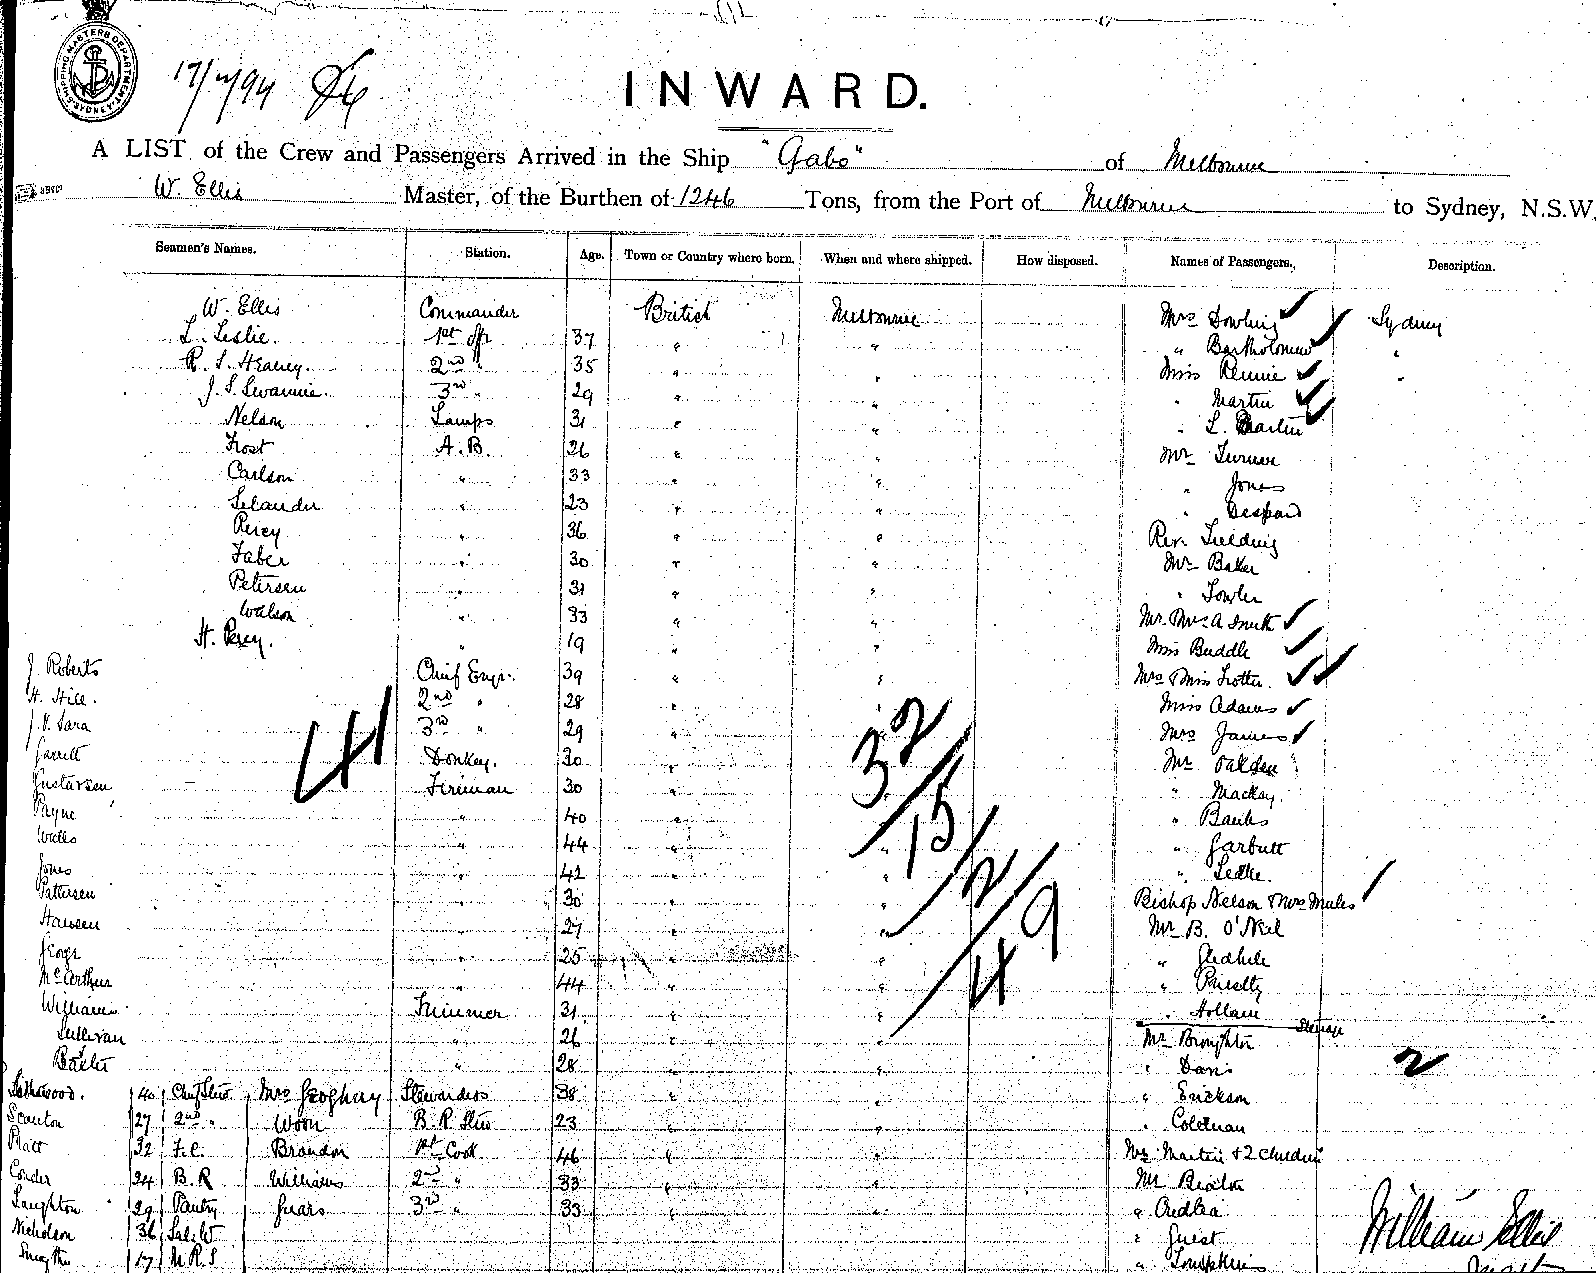 SHIPPING MASTERS DEPARTMENT SYDNEY
INWARD.
A LIST of the Crew and Passengers Arrived in the Ship "Gabo" of Melbourne
W. Ellis Master, of the Burthen of 1246 Tons, from the Port of Melbourne to Sydney, N.S.W.
Seamen's Names. Station. Age. Town or Country where born. When and where shipped. How disposed. Names of Passengers. Description.
W. Ellis Commander British Melbourne Mrs Dowling Sydney
L. Leslie. 1st Offr 37 " " " Bartholomew "
R. S. 2nd " 35 " " Miss Rennie "
J. S. 3rd " 29 " " " Martin
Nelson Lamps 31 " " " L. Martin
Frost A.B. 26 " " Mr Turner
Carlson " 33 " " " Jones
Selander " 23 " " " Despard
Percy " 36 " " Rev. Fielding
Faber " 30 " " Mr Baker
Petersen " 31 " " " Fowler
Watson " 33 " " Mr. Mrs A Smith
H. Percy. " 19 " " Miss Buddle
J. Roberts Chief Engr. 39 " " Mrs & Miss Trotter
H. Hill. 2nd " 28 " " Miss Adams
J. V. Sara 3rd " 29 " " Mrs James
Garrett Donkey. 30 " " Mr
Gustafsen Fireman 30 " " " Mackay.
Payne " 40 " " " Banks
Wells " 44 " " " Garbutt
Jones " 42 " " "
Pattersen " 30 " " Bishop Nelson & Mrs Mules
Hansen " 27 " " Mr B. O'Neil
" 25 " " " Gledhill
McArthur " 44 " " " Priestly
Williams Trimmer 31 " " "
Steerage
Sullivan " 26 " " Mr Broughton
" 28 " " " Davis
40 Chief Stwd Mrs Geoghary Stewardess 38 " " " Erickson
Scanlon 27 2nd " Woon B R Stwd 23 " " " Coleman
Platt 32 F.C. Brandon 1st Cook 46 " " Mrs Martin & 2 Children
Conder 24 B.R Williams 2nd " 33 " " Mr
Laughton 29 Pantry 3rd " 33 " "
Nicholson 36 " Guest
Smythe 17 M.R.S "
41
32
15
2
49
2
William Ellis